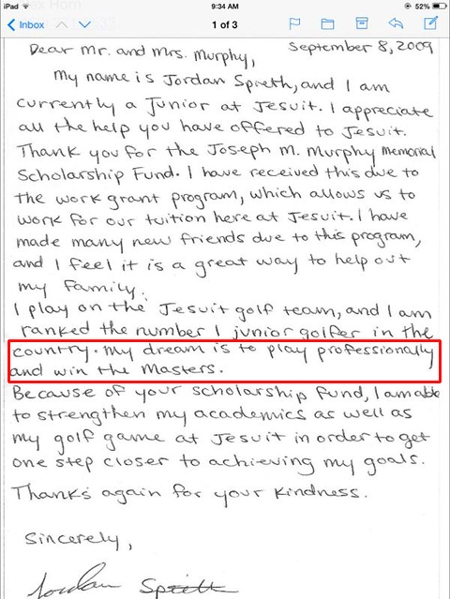 iPad 9:34 AM 52%
Inbox 1 of 3
Dear Mr. and Mrs. Murphy, September 8, 2009
My name is Jordan Spieth, and I am
currently a Junior at Jesuit. I appreciate
all the help you have offered to Jesuit.
Thank you for the Joseph M. Murphy Memorial
Scholarship Fund. I have received this due to
the work grant program, which allows us to
work for our tuition here at Jesuit. I have
made many new friends due to this program,
and I feel it is a great way to help out
my family.
I play on the Jesuit golf team, and I am
ranked the number 1 junior golfer in the
country. My dream is to play professionally
and win the Masters.
Because of your scholarship fund, I am able
to strengthen my academics as well as
my golf game at Jesuit in order to get
one step closer to achieving my goals.
Thanks again for your kindness.
Sincerely,
Jordan Spieth